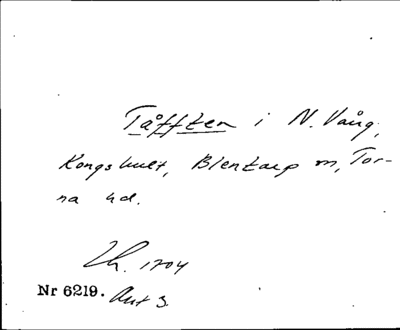 Tåfften i N. Vång,
Kongshult, Blentarp sn, Tor-
na hd.
Lh. 1704
Nr 6219. Akt 3